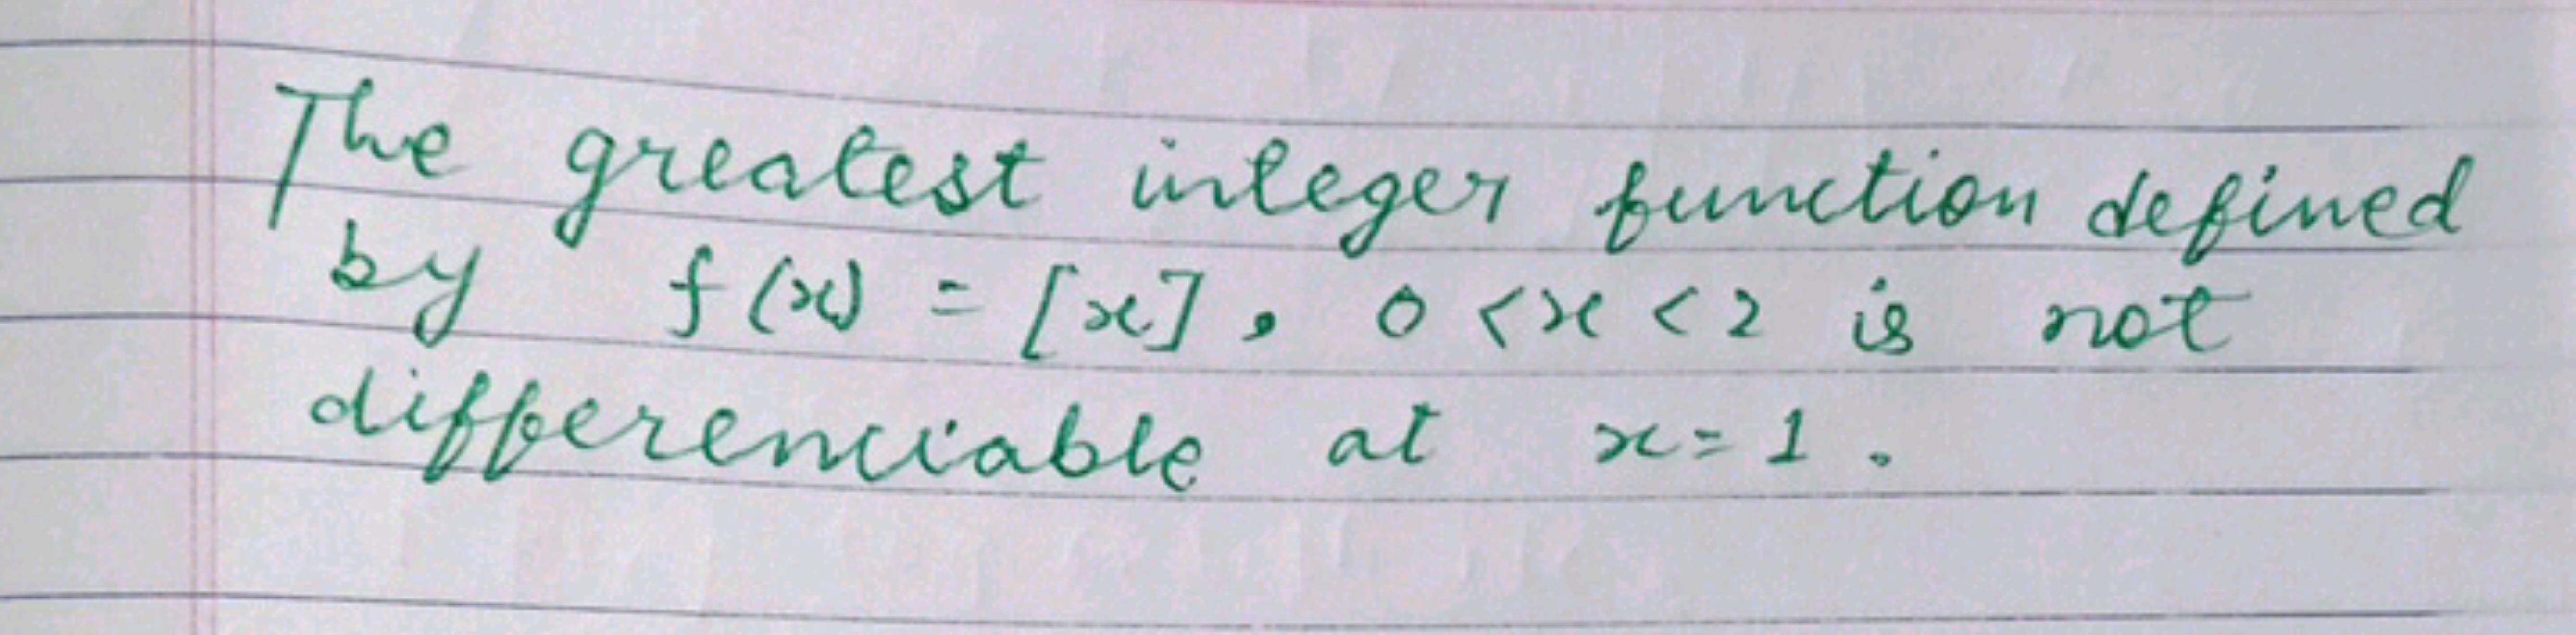 The greatest integer function defined
by f(x) = [x], 0 < x < 2 is not
differenciable at x = 1.